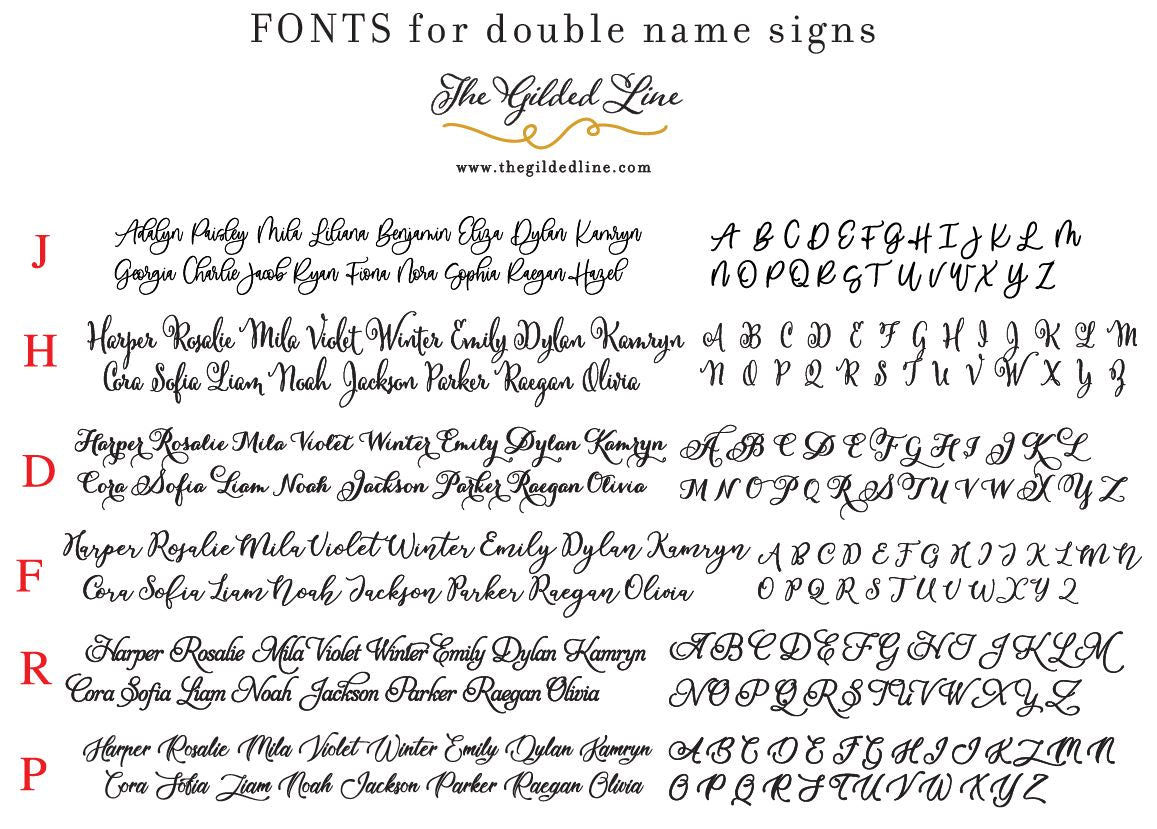 FONTS for double name signs
The Gilded Line
www.thegildedline.com
J
Adalyn Paisley Mila Liliana Benjamin Eliza Dylan Kamryn
A B C D E F G H I J K L M
Georgia Charlie Jacob Ryan Fiona Nora Sophia Raegan Hazel
N O P Q R S T U V W X Y Z
H
Harper Rosalie Mila Violet Winter Emily Dylan Kamryn
A B C D E F G H I J K L M
Cora Sofia Liam Noah Jackson Parker Raegan Olivia
N O P Q R S T U V W X Y Z
D
Harper Rosalie Mila Violet Winter Emily Dylan Kamryn
A B C D E F G H I J K L
Cora Sofia Liam Noah Jackson Parker Raegan Olivia
M N O P Q R S T U V W X Y Z
F
Harper Rosalie Mila Violet Winter Emily Dylan Kamryn
A B C D E F G H I J K L M N
Cora Sofia Liam Noah Jackson Parker Raegan Olivia
O P Q R S T U V W X Y Z
R
Harper Rosalie Mila Violet Winter Emily Dylan Kamryn
A B C D E F G H I J K L M
Cora Sofia Liam Noah Jackson Parker Raegan Olivia
N O P Q R S T U V W X Y Z
P
Harper Rosalie Mila Violet Winter Emily Dylan Kamryn
A B C D E F G H I J K L M N
Cora Sofia Liam Noah Jackson Parker Raegan Olivia
O P Q R S T U V W X Y Z